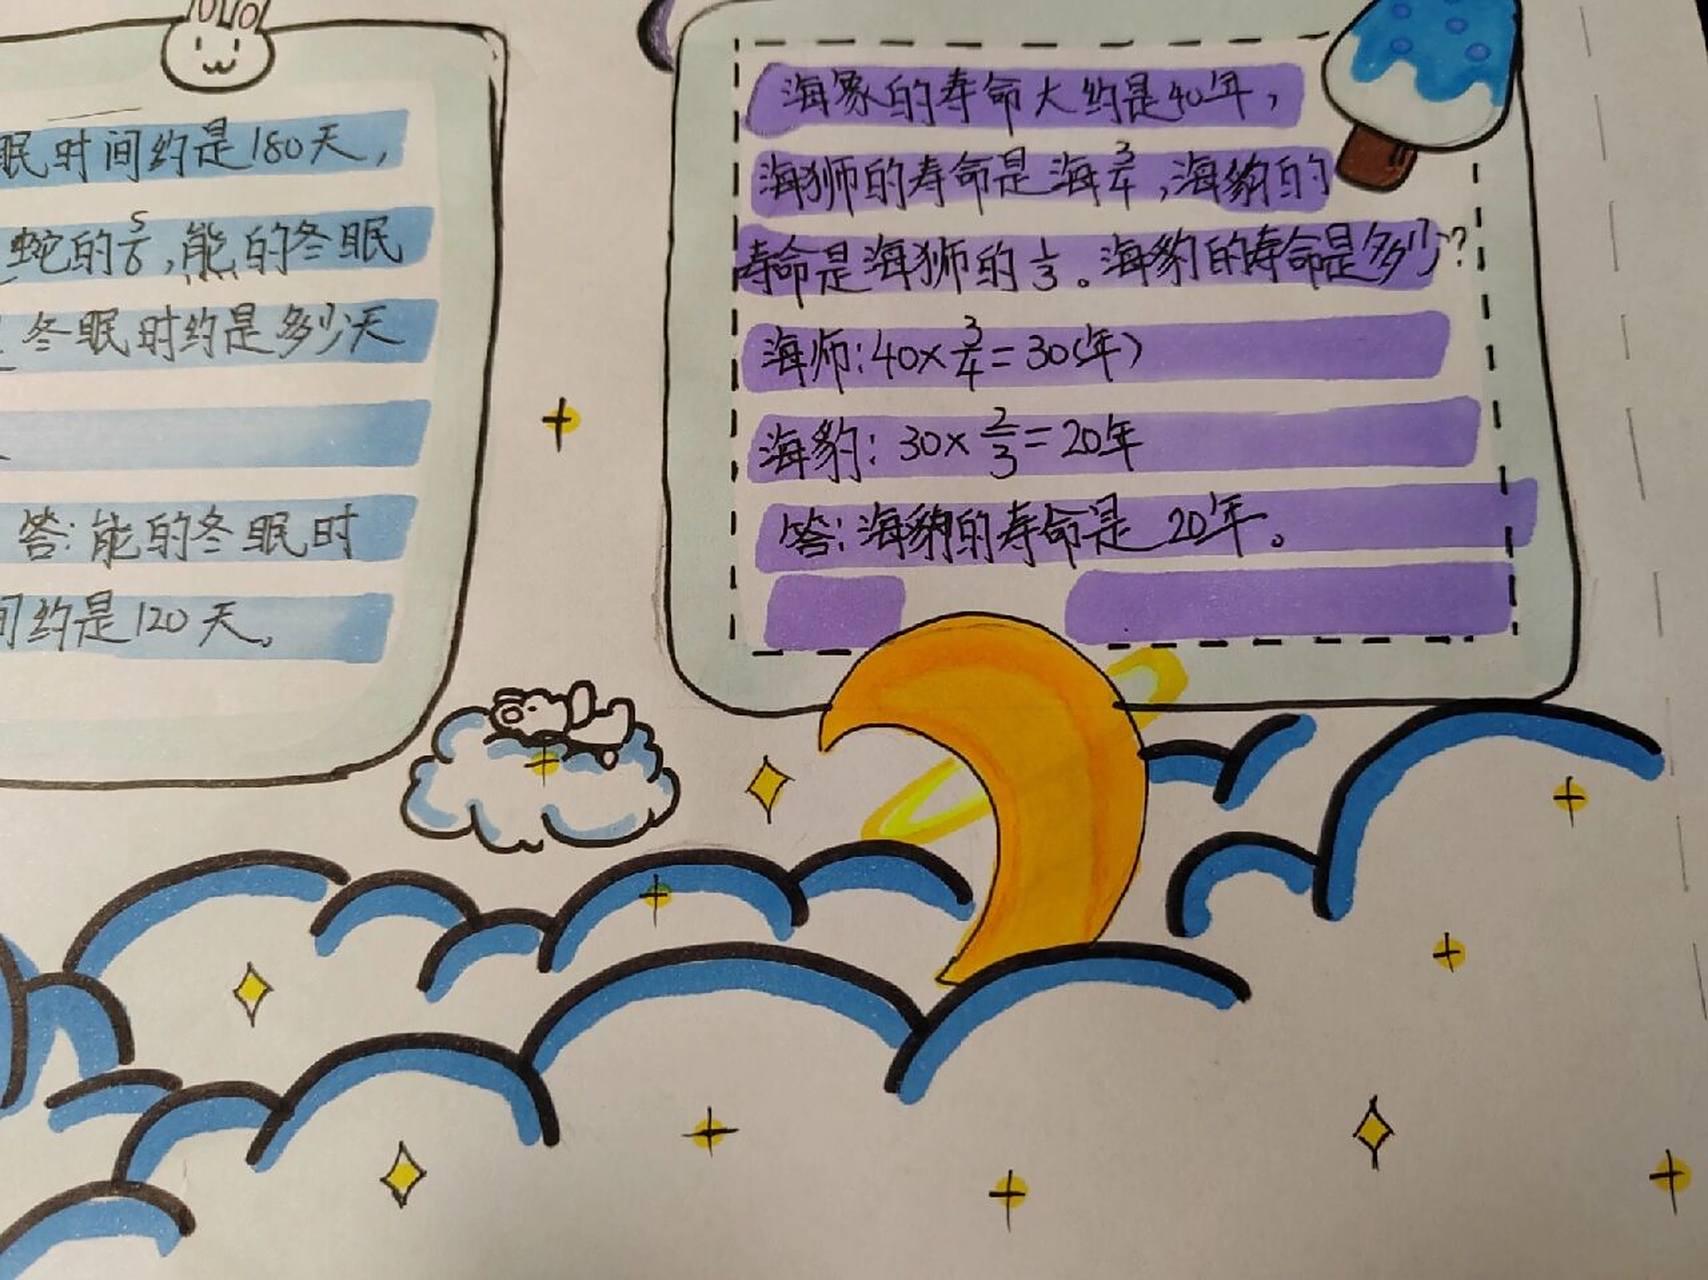 眠时间约是180天,
蛇的5/6,能的冬眠
冬眠时约是多少天
答:能的冬眠时
间约是120天。
海象的寿命大约是40年,
海狮的寿命是海3/4,海豹的
寿命是海狮的1/3。海豹的寿命是多少?
海师:40×3/4=30(年)
海豹:30×2/3=20年
答:海豹的寿命是20年。